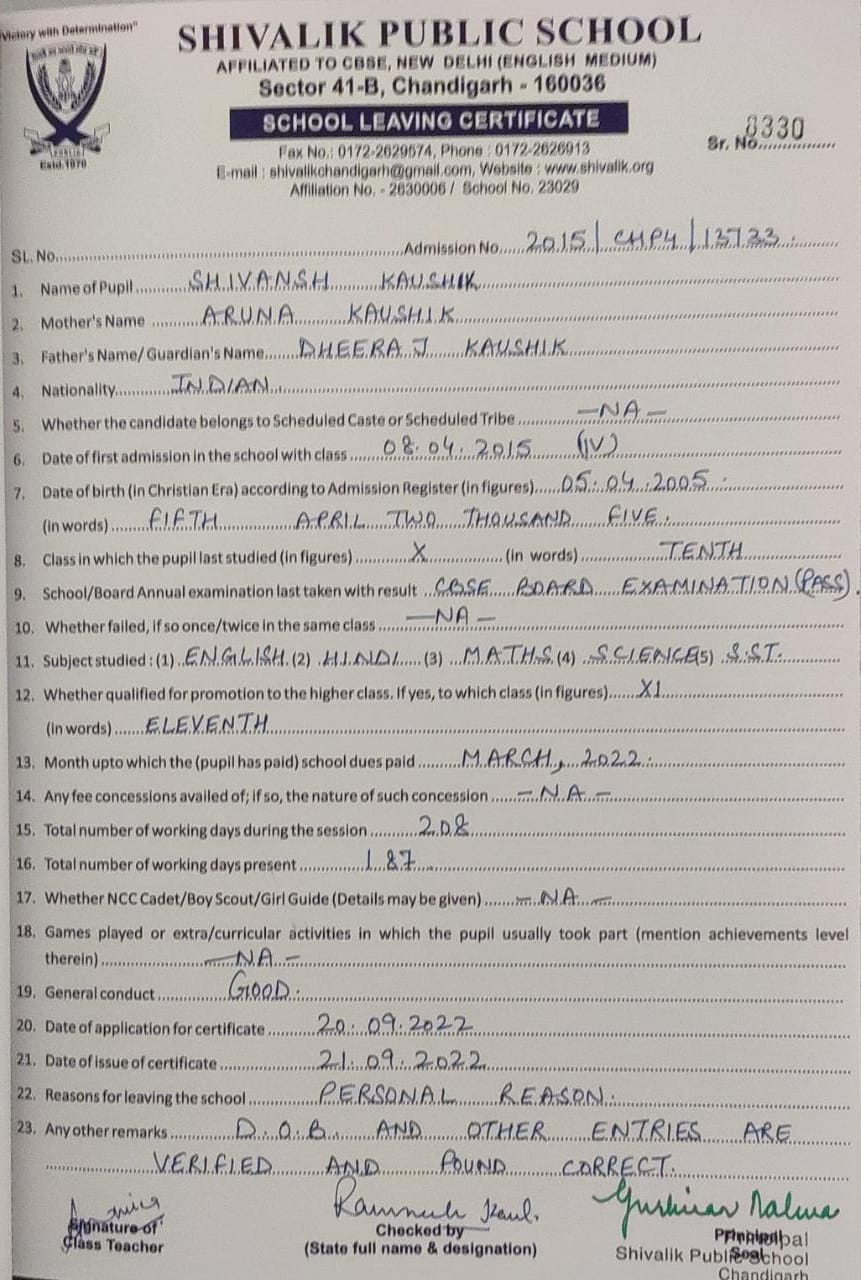 Victory with Determination"
SHIVALIK PUBLIC SCHOOL
AFFILIATED TO CBSE, NEW DELHI (ENGLISH MEDIUM)
Sector 41-B, Chandigarh - 160036
SCHOOL LEAVING CERTIFICATE
Estd.1970
Sr. No. 8330
Fax No.: 0172-2629574, Phone : 0172-2626913
E-mail : shivalikchandigarh@gmail.com, Website : www.shivalik.org
Affiliation No. - 2630006 / School No. 23029
SL. No. Admission No. 2015/CHP4/13723
1. Name of Pupil SHIVANSH KAUSHIK
2. Mother's Name ARUNA KAUSHIK
3. Father's Name/ Guardian's Name DHEERAJ KAUSHIK
4. Nationality INDIAN
5. Whether the candidate belongs to Scheduled Caste or Scheduled Tribe -NA-
6. Date of first admission in the school with class 08.04.2015 (IV)
7. Date of birth (in Christian Era) according to Admission Register (in figures) 05.04.2005
(in words) FIFTH APRIL TWO THOUSAND FIVE.
8. Class in which the pupil last studied (in figures) X (in words) TENTH
9. School/Board Annual examination last taken with result CBSE BOARD EXAMINATION (PASS).
10. Whether failed, if so once/twice in the same class -NA-
11. Subject studied : (1) ENGLISH (2) HINDI (3) MATHS (4) SCIENCE (5) S.ST.
12. Whether qualified for promotion to the higher class. If yes, to which class (in figures) XI
(in words) ELEVENTH
13. Month upto which the (pupil has paid) school dues paid MARCH, 2022.
14. Any fee concessions availed of; if so, the nature of such concession -NA-
15. Total number of working days during the session 208
16. Total number of working days present 187
17. Whether NCC Cadet/Boy Scout/Girl Guide (Details may be given) -NA-
18. Games played or extra/curricular activities in which the pupil usually took part (mention achievements level
therein) -NA-
19. General conduct GOOD.
20. Date of application for certificate 20.09.2022
21. Date of issue of certificate 21.09.2022
22. Reasons for leaving the school PERSONAL REASON.
23. Any other remarks D.O.B. AND OTHER ENTRIES ARE
VERIFIED AND FOUND CORRECT.
Signature of
Class Teacher
Kaul.
Checked by
(State full name & designation)
Principal
Seal
Principal
Shivalik Public School
Chandigarh